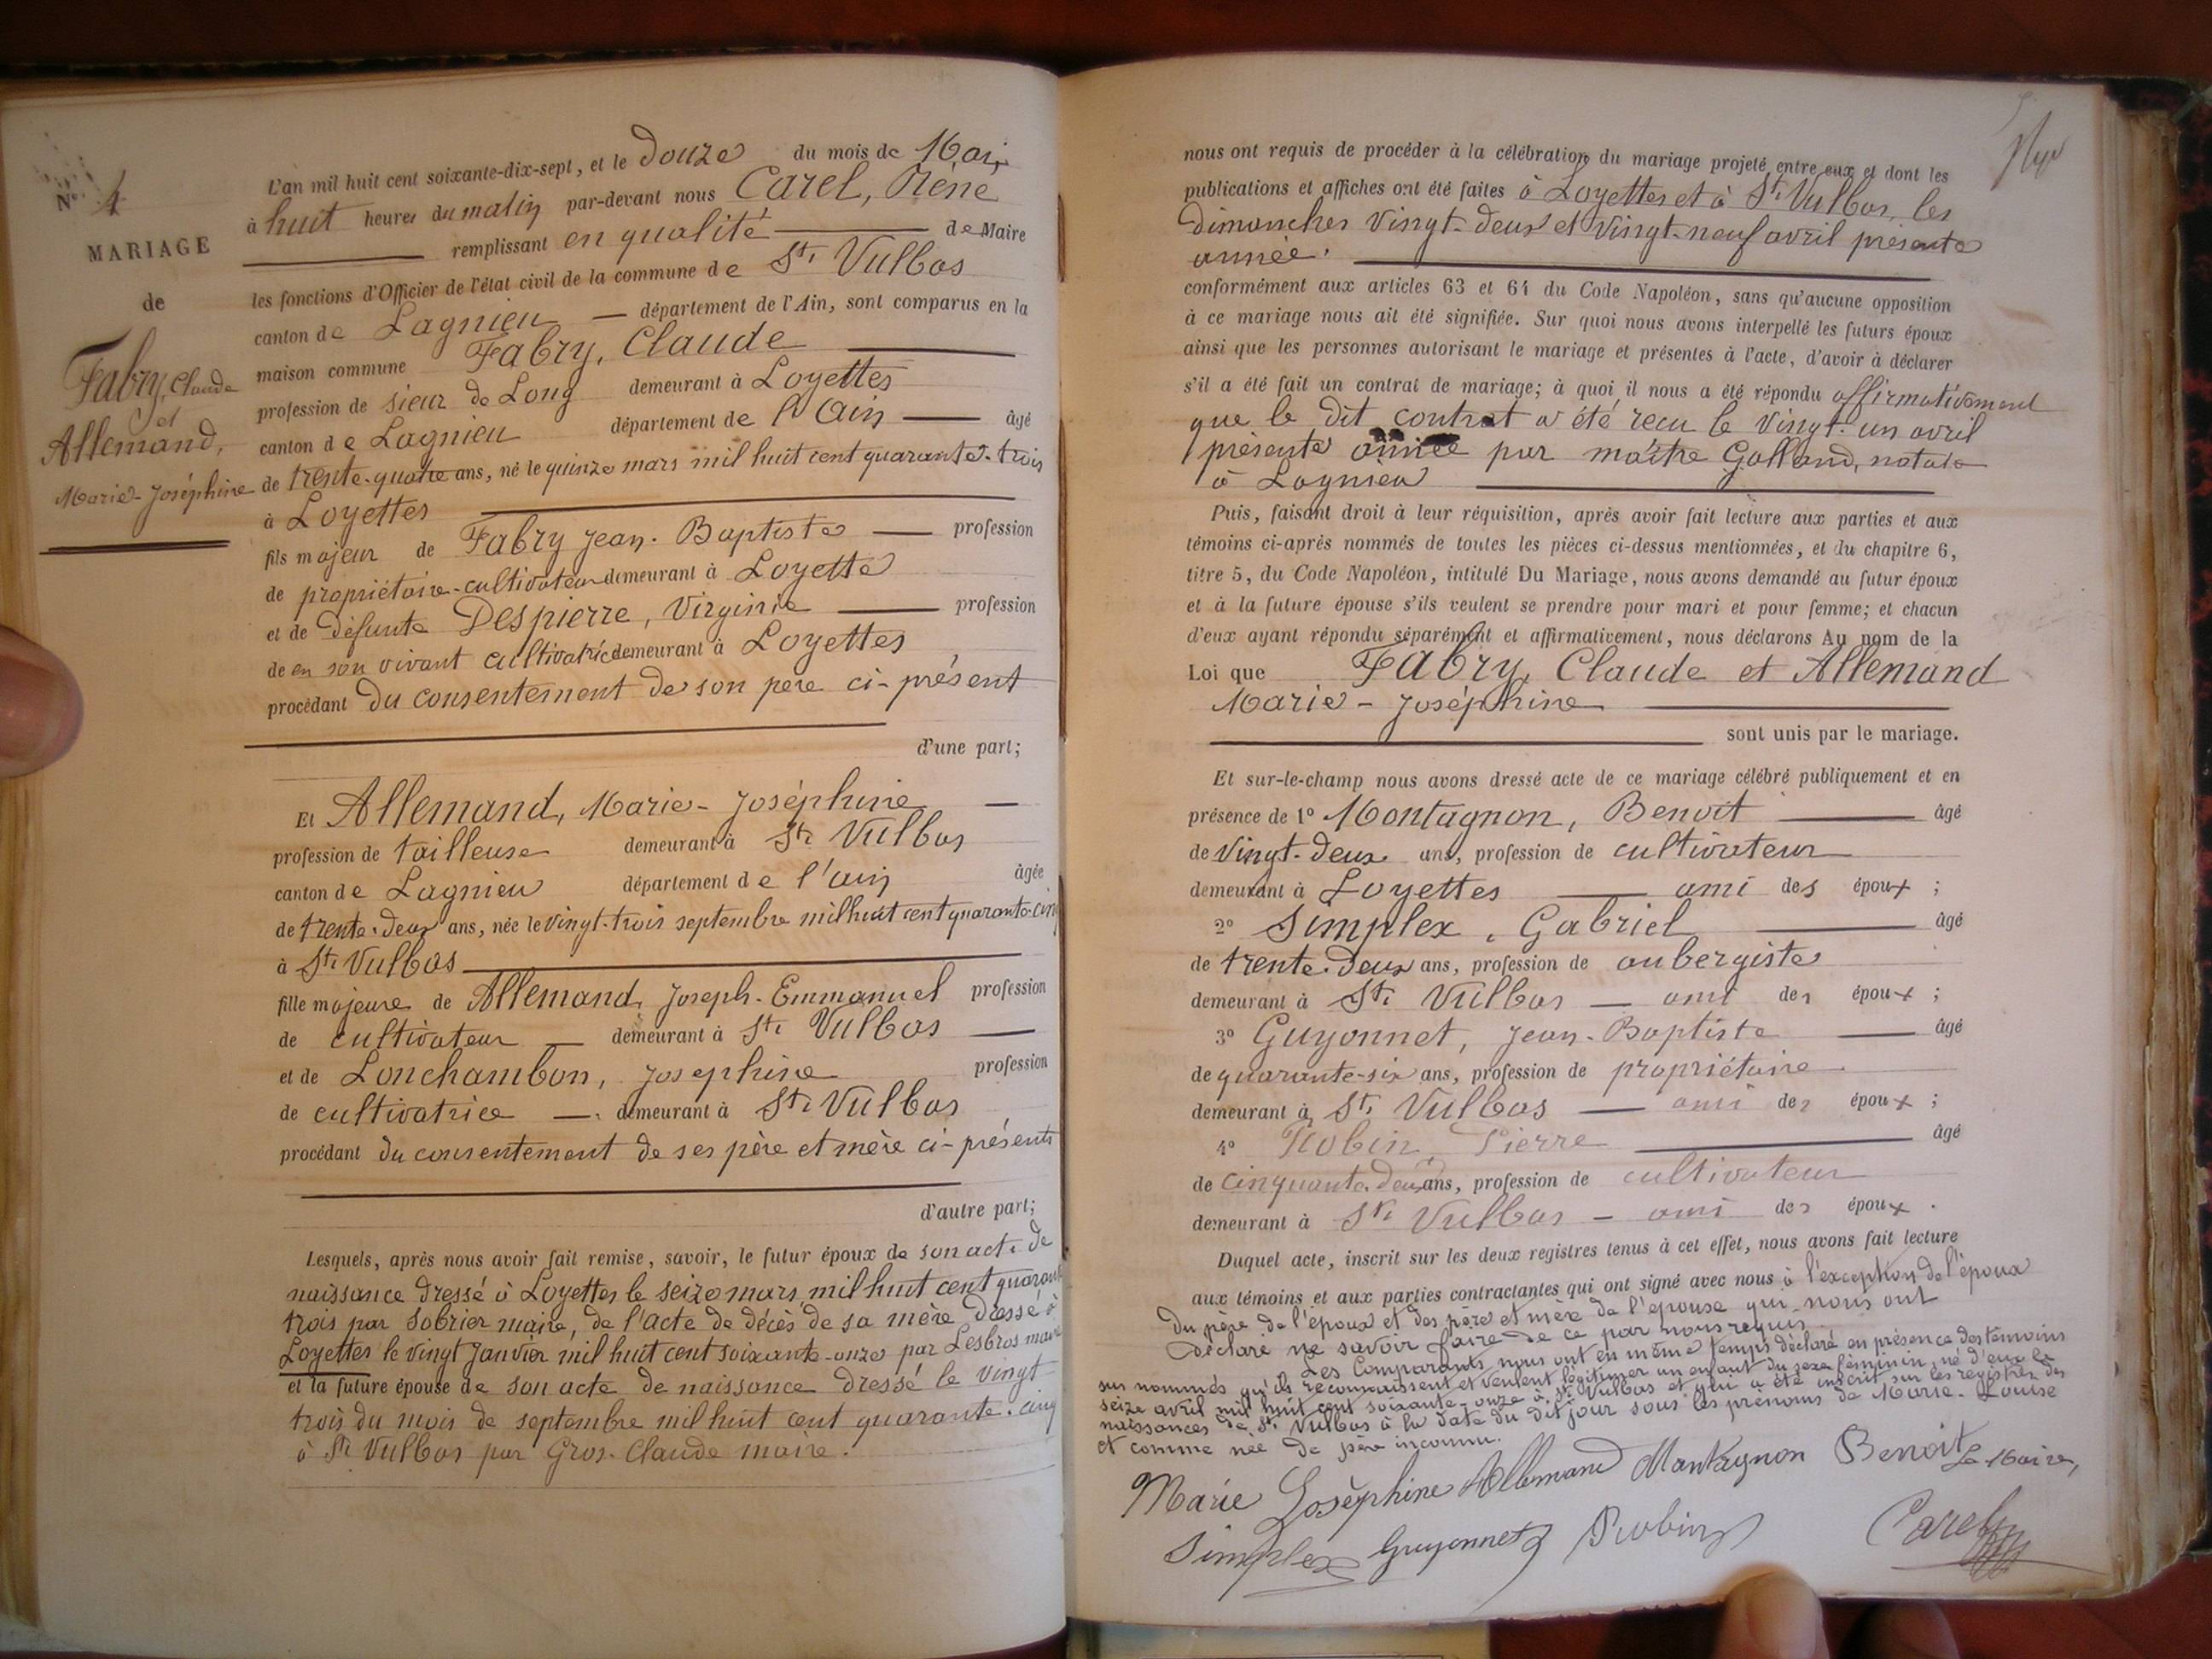 N° 4
MARIAGE
de
Fabry, Claude
et
Allemand,
Marie-Joséphine
L'an mil huit cent soixante-dix-sept, et le douze du mois de Mai,
à huit heures du matin par-devant nous Carel, Réne
remplissant en qualité de Maire
les fonctions d'Officier de l'état civil de la commune de St. Vulbas
canton de Lagnieu — département de l'Ain, sont comparus en la
maison commune Fabry, Claude
profession de sieur de Long demeurant à Loyettes
canton de Lagnieu département de l'Ain — âgé
de trente-quatre ans, né le quinze mars mil huit cent quarante-trois
à Loyettes
fils majeur de Fabry Jean-Baptiste — profession
de propriétaire-cultivateur demeurant à Loyette
et de défunte Despierre, Virginie — profession
de en son vivant cultivatrice demeurant à Loyettes
procédant du consentement de son père ci-présent
d'une part;
Et Allemand, Marie-Joséphine —
profession de tailleuse demeurant à St. Vulbas
canton de Lagnieu département de l'ain âgée
de trente-deux ans, née le vingt-trois septembre mil huit cent quarante-cinq
à St. Vulbas
fille majeure de Allemand, Joseph-Emmanuel profession
de cultivateur — demeurant à St. Vulbas —
et de Lonchambon, Josephine profession
de cultivatrice — demeurant à St. Vulbas
procédant du consentement de ses père et mère ci-présents
d'autre part;
Lesquels, après nous avoir fait remise, savoir, le futur époux de son acte de
naissance dressé à Loyettes le seize mars mil huit cent quarante
trois par Sobrier maire, de l'acte de décès de sa mère dressé à
Loyettes le vingt Janvier mil huit cent soixante-onze par Lesbros maire
et la future épouse de son acte de naissance dressé le vingt
trois du mois de septembre mil huit cent quarante-cinq
à St. Vulbas par Gros-Claude maire.
nous ont requis de procéder à la célébration du mariage projeté entre eux et dont les
publications et affiches ont été faites à Loyettes et à St. Vulbas, les
dimanches vingt-deux et vingt-neuf avril présente
année.
conformément aux articles 63 et 64 du Code Napoléon, sans qu'aucune opposition
à ce mariage nous ait été signifiée. Sur quoi nous avons interpellé les futurs époux
ainsi que les personnes autorisant le mariage et présentes à l'acte, d'avoir à déclarer
s'il a été fait un contrat de mariage; à quoi il nous a été répondu affirmativement
que le dit contrat a été reçu le vingt-un avril
présente année par maître Golland, notaire
à Lagnieu
Puis, faisant droit à leur réquisition, après avoir fait lecture aux parties et aux
témoins ci-après nommés de toutes les pièces ci-dessus mentionnées, et du chapitre 6,
titre 5, du Code Napoléon, intitulé Du Mariage, nous avons demandé au futur époux
et à la future épouse s'ils veulent se prendre pour mari et pour femme; et chacun
d'eux ayant répondu séparément et affirmativement, nous déclarons Au nom de la
Loi que Fabry, Claude et Allemand
Marie-Joséphine
sont unis par le mariage.
Et sur-le-champ nous avons dressé acte de ce mariage célébré publiquement et en
présence de 1° Montagnon, Benoit — âgé
de vingt-deux ans, profession de cultivateur
demeurant à Loyettes — ami des époux ;
2° Simplex, Gabriel — âgé
de trente-deux ans, profession de aubergiste
demeurant à St. Vulbas — ami des époux ;
3° Guyonnet, Jean-Baptiste — âgé
de quarante-six ans, profession de propriétaire
demeurant à St. Vulbas — ami des époux ;
4° Robin, Pierre — âgé
de cinquante-deux ans, profession de cultivateur
demeurant à St. Vulbas — ami des époux.
Duquel acte, inscrit sur les deux registres tenus à cet effet, nous avons fait lecture
aux témoins et aux parties contractantes qui ont signé avec nous à l'exception de l'époux
du père de l'époux et des père et mère de l'épouse qui nous ont
déclaré ne savoir faire de ce par nous requis.
Les Comparants nous ont en même temps déclaré en présence des témoins
sus nommés qu'ils reconnaissent et veulent légitimer un enfant du sexe féminin, né d'eux le
seize avril mil huit cent soixante-onze à St. Vulbas et qui a été inscrit sur les registres des
naissances de St. Vulbas à la date du dit jour sous les prénoms de Marie-Louise
et comme née de père inconnu.
Marie Joséphine Allemand Montagnon Benoit Le Maire,
Simplex Guyonnet Robin Carel